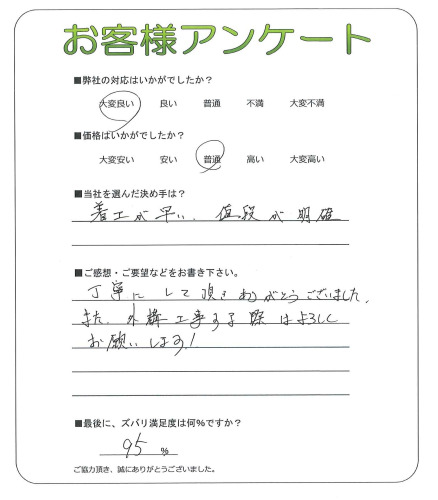 お客様アンケート
■弊社の対応はいかがでしたか？
大変良い 良い 普通 不満 大変不満
■価格はいかがでしたか？
大変安い 安い 普通 高い 大変高い
■当社を選んだ決め手は？
着工が早い、値段が明確
■ご感想・ご要望などをお書き下さい。
丁寧にして頂きありがとうございました。
また、外構工事する際はよろしく
お願いします！
■最後に、ズバリ満足度は何%ですか？
95 %
ご協力頂き、誠にありがとうございました。